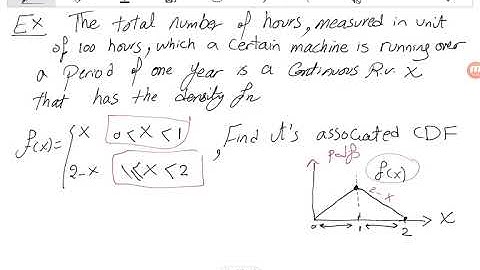 Ex The total number of hours, measured in unit
of 100 hours, which a certain machine is running over
a period of one year is a continuous R.v. X
that has the density fn
f(x)= { x 0<x<1
2-x 1≤x<2
, Find it's associated CDF
pdf
f(x)
2-x
0 1 2 X